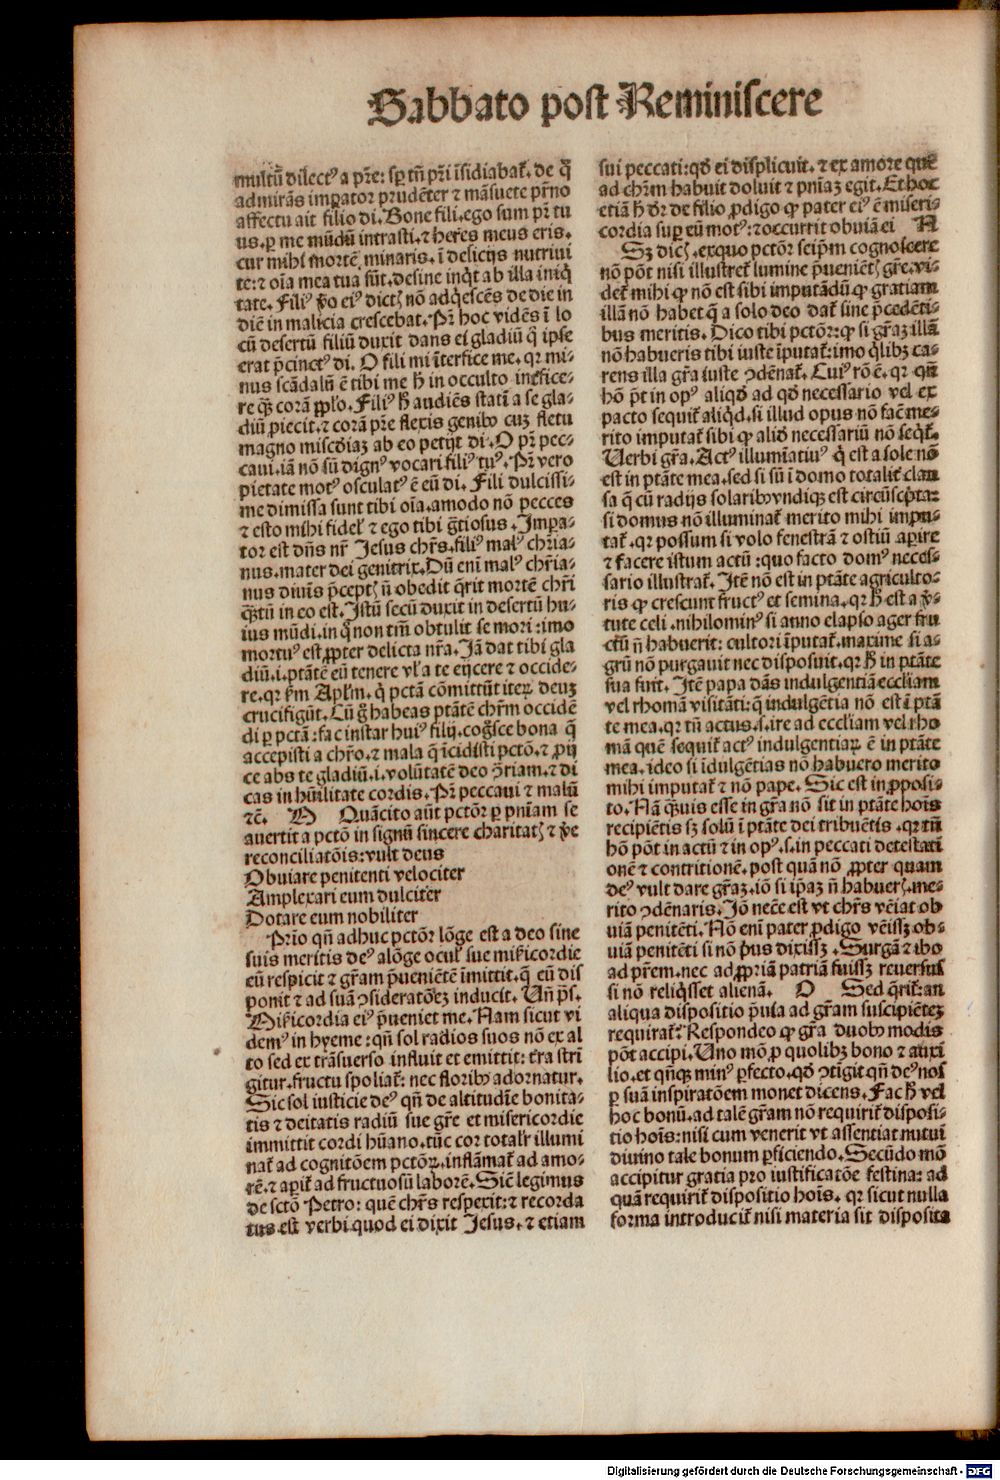 Sabbato post Reminiscere
multū dilectꝰ a pr̄e: sp̱ tn̄ pr̄i īsidiabat᷑. de q̄
admirās imp̱ator prudēter ⁊ māsuete pr̄no
affectu ait filio di. Bone fili. ego sum pr̄ tu
us. ꝑ me mūdū intrasti. ⁊ heres meus eris.
cur mihi mortē minaris. ī delicijs nutriui
te: ⁊ oīa mea tua sūt. desine inq̇t ab illa iniq̇
tate. Filiꝰ v̄o eiꝰ dictꝭ nō adq̇escēs de die in
diē in malicia crescebat. Pꝰ hoc vidēs ī lo
cū desertū filiū duxit dans ei gladiū q̇ ipse
erat p̄cinctꝰ di. O fili mi īterfice me. qꝛ mi⸗
nus scādalū ē tibi me h̄ in occulto inṫfice⸗
re qꝫ̄ corā pplo. Filiꝰ h̄ audiēs statī a se gla⸗
diū ꝓiecit. ⁊ corā pr̄e flexis genibꝰ cuꝫ fletu
magno miscd̄iaꝫ ab eo petijt di. O pr̄ pec⸗
caui. iā nō sū dignꝰ vocari filiꝰ tuꝰ. Pr̄ vero
pietate motꝰ osculatꝰ ē eū di. Fili dulcissi⸗
me dimissa sunt tibi oīa. amodo nō pecces
⁊ esto mihi fidel᷑ ⁊ ego tibi gr̄tiosus. Imp̱a⸗
tor est dn̄s nr̄ Jesus chr̄s. filiꝰ malꝰ chr̄ia⸗
nus. mater dei genitrix. Dū eni malꝰ chr̄ia⸗
nus diuīs p̄ceptꝭ n̄ obedit q̄rit mortē chr̄i
qꝫ̄tū in eo est. Istū secū duxit in desertū hu⸗
ius mūdi. in q̊ non tm̄ obtulit se mori: imo
mortuꝰ est ꝓpter delicta nr̄a. Iā dat tibi gla
diū. i. ptātē eū tenere vl᷑ a te eijcere ⁊ occide⸗
re. qꝛ ẜm Apl᷑m. q̇ pctā cōmittūt iteꝝ deuꝫ
crucifigūt. Cū g̊ habeas ptātē chr̄m occidē
di ꝑ pctā: fac instar huiꝰ filij. cog̊sce bona q̄
accepisti a chr̄o. ⁊ mala q̄ īcidisti pctō. ⁊ ꝓij
ce abs te gladiū. i. volūtatē deo ꝯ̄riam. ⁊ di
cas in hūilitate cordis. Pr̄ peccaui ⁊ malū
⁊c̄. M Quācito aūt pctōr ꝑ pn̄iam se
auertit a pctō in signū sincere charitatꝭ ⁊ v̄e
reconciliatōis: vult deus
Obuiare penitenti velociter
Amplexari eum dulciter
Dotare eum nobiliter
Prio qn̄ adhuc pctōr lōge est a deo sine
suis meritis deꝰ alōge ocul᷑ sue mīẜicordie
eū respicit ⁊ gr̄am p̄ueniētē imittit. q̄ eū dis
ponit ⁊ ad suā ꝯsideratōeꝫ inducit. Un̄ p̄s.
Mīẜicordia eiꝰ p̄ueniet me. Nam sicut vi
demꝰ in hyeme: qn̄ sol radios suos nō ex al
to sed ex trāsuerso influit et emittit: t̄ra strī
gitur. fructu spoliat᷑: nec floribꝰ adornatur.
Sic sol iusticie deꝰ qn̄ de altitudīe bonita⸗
tis ⁊ deitatis radiū sue gr̄e et misericordie
immittit cordi hūano. tūc cor totalr̄ illumi
nat᷑ ad cognitōem pctōꝝ. inflāmat᷑ ad amo⸗
rē. ⁊ aꝑit᷑ ad fructuosū laborē. Sic̄ legimus
de sctō Petro: quē chr̄s respexit: ⁊ recorda
tus est verbi quod ei dixit Jesus. ⁊ etiam
sui peccati: qd̄ ei displicuit. ⁊ ex amore quē
ad chr̄m habuit doluit ⁊ pn̄iaꝫ egit. Et hoc
etiā h̄ dr̄ de filio ꝓdigo qꝙ pater eiꝰ ē miseri⸗
cordia suꝑ eū motꝰ: ⁊ occurrit obuiā ei N
Sꝫ dicꝭ. exquo pctōr seip̄m cognoscere
nō pōt nisi illustret᷑ lumine p̄ueniētꝭ gr̄e. vi⸗
det᷑ mihi ꝙ nō est sibi imputādū ꝙ gratiam
illā nō habet q̄ a solo deo dat᷑ sine p̄cedēti⸗
bus meritis. Dico tibi pctōr: ꝙ si gr̄aꝫ illā
nō habueris tibi iuste īputat᷑: imo q̇libꝫ ca⸗
rens illa gr̄a iuste ꝯdēnat᷑. Cuiꝰ rō ē. qꝛ qn̄
hō p̄t in opꝰ aliqd̄ ad qd̄ necessario vel ex
pacto sequit᷑ aliq̇d. si illud opus nō fac̄ me⸗
rito imputat᷑ sibi ꝙ alid̄ necessariū nō seq̇t᷑.
Verbi gr̄a. Actꝰ illumīatiuꝰ q̇ est a sole nō
est in ptāte mea. sed si sū ī domo totalit᷑ clau
sa q̄ cū radijs solaribꝰ vndiqꝫ est circūscp̄ta:
si domus nō illuminat᷑ merito mihi impu⸗
tat᷑. qꝛ possum si volo fenestrā ⁊ ostiū aꝑire
⁊ facere istum actū: quo facto domꝰ neces⸗
sario illustrat᷑. Itē nō est in ptāte agriculto⸗
ris ꝙ crescunt fructꝰ et semina. qꝛ h̄ est a v̓⸗
tute celi. nihilominꝰ si anno elapso ager fru
ctū n̄ habuerit: cultori īputat᷑. maxime si a⸗
grū nō purgauit nec disposuit. qꝛ h̄ in ptāte
sua fuit. Itē papa dās indulgentiā eccliam
vel rhomā visitāti: q̄ indulgētia nō est ī ptā
te mea. qꝛ tn̄ actus. s. ire ad eccliam vel rho
mā quē sequit᷑ actꝰ indulgentiaꝝ ē in ptāte
mea. ideo si īdulgētias nō habuero merito
mihi imputat᷑ ⁊ nō pape. Sic est in ꝓposi⸗
to. Nā qꝫ̄uis esse in gr̄a nō sit in ptāte hoīs
recipiētis sꝫ solū ī ptāte dei tribuētis. qꝛ tn̄
hō pōt in actū ⁊ in opꝰ. s. in peccati detestati
onē ⁊ contritionē. post quā nō ꝓpter quam
deꝰ vult dare gr̄aꝫ. iō si ip̄aꝫ n̄ habuerꝭ. me⸗
rito ꝯdēnaris. Iō necē est vt chr̄s vēiat ob
uiā penitēti. Nō enī pater ꝓdigo vēissꝫ ob⸗
uiā penitēti si nō p̓us dixissꝫ. Surgā ⁊ ibo
ad pr̄em. nec ad ꝓpriā patriā fuissꝫ reuersus
si nō reliq̇sset alienā. O Sed q̄rit᷑: an
aliqua dispositio p̄uia ad gr̄am suscipiēteꝫ
requirat᷑. Respondeo ꝙ gr̄a duobꝰ modis
pōt accipi. Uno mō ꝓ quolibꝫ bono ⁊ auxi
lio. et qn̄qꝫ minꝰ ꝑfecto. qd̄ ꝯtīgit qn̄ deꝰ nos
ꝑ suā inspiratōem monet dicens. Fac h̄ vel
hoc bonū. ad talē gr̄am nō requirit᷑ disposi⸗
tio hoīs: nisi cum venerit vt assentiat nutui
diuino tale bonum ꝑficiendo. Secūdo mō
accipitur gratia pro iustificatōe festina: ad
quā requirit᷑ dispositio hoīs. qꝛ sicut nulla
forma introducit᷑ nisi materia sit disposita
Digitalisierung gefördert durch die Deutsche Forschungsgemeinschaft - DFG